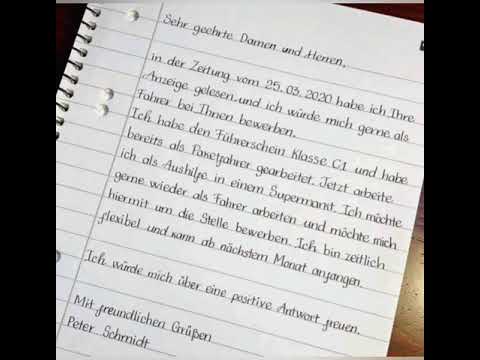 Sehr geehrte Damen und Herren,
in der Zeitung vom 25.03.2020 habe ich Ihre
Anzeige gelesen und ich würde mich gerne als
Fahrer bei Ihnen bewerben.
Ich habe den Führerschein Klasse C1 und habe
bereits als Paketfahrer gearbeitet. Jetzt arbeite
ich als Aushilfe in einem Supermarkt. Ich möchte
gerne wieder als Fahrer arbeiten und möchte mich
hiermit um die Stelle bewerben. Ich bin zeitlich
flexibel und kann ab nächstem Monat anfangen.
Ich würde mich über eine positive Antwort freuen.
Mit freundlichen Grüßen
Peter Schmidt